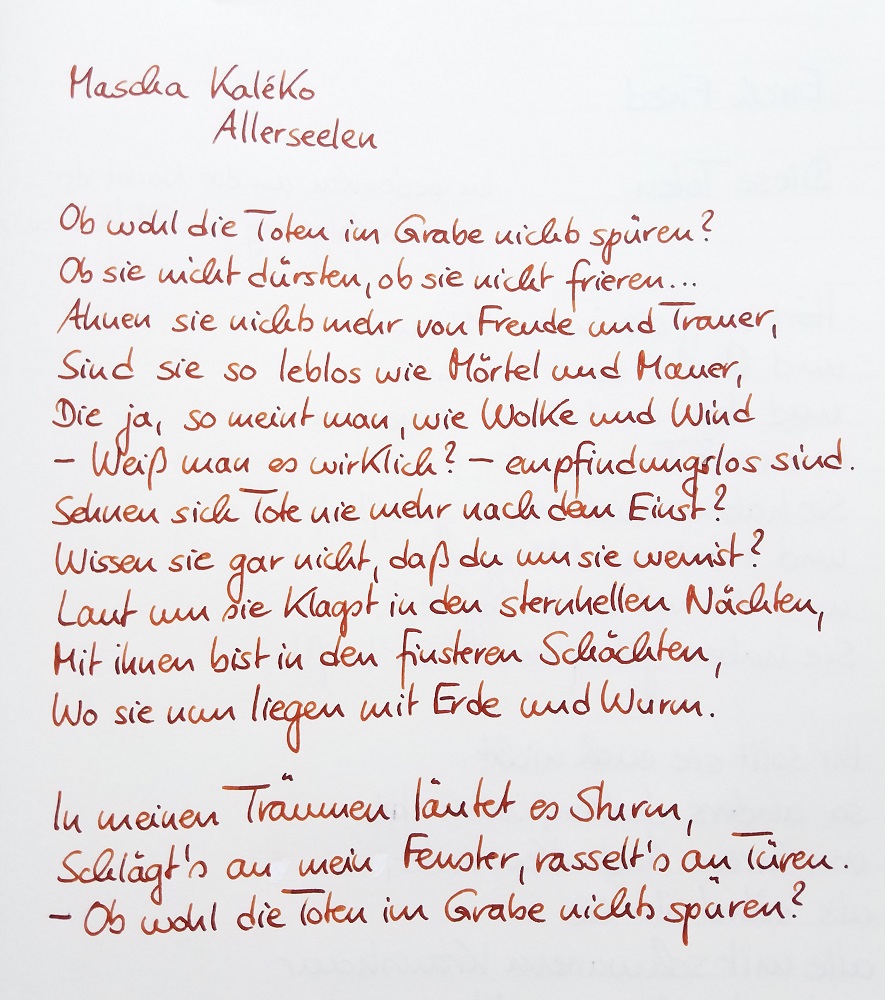 Mascha Kaléko
Allerseelen
Ob wohl die Toten im Grabe nichts spüren?
Ob sie nicht dürsten, ob sie nicht frieren...
Ahnen sie nichts mehr von Freude und Trauer,
Sind sie so leblos wie Mörtel und Mauer,
Die ja, so meint man, wie Wolke und Wind
– Weiß man es wirklich? – empfindungslos sind.
Sehnen sich Tote nie mehr nach dem Einst?
Wissen sie gar nicht, daß du um sie weinst?
Laut um sie klagst in den sternhellen Nächten,
Mit ihnen bist in den finsteren Schächten,
Wo sie nun liegen mit Erde und Wurm.
In meinen Träumen läutet es Sturm,
Schlägt's an mein Fenster, rasselt's an Türen.
– Ob wohl die Toten im Grabe nichts spüren?